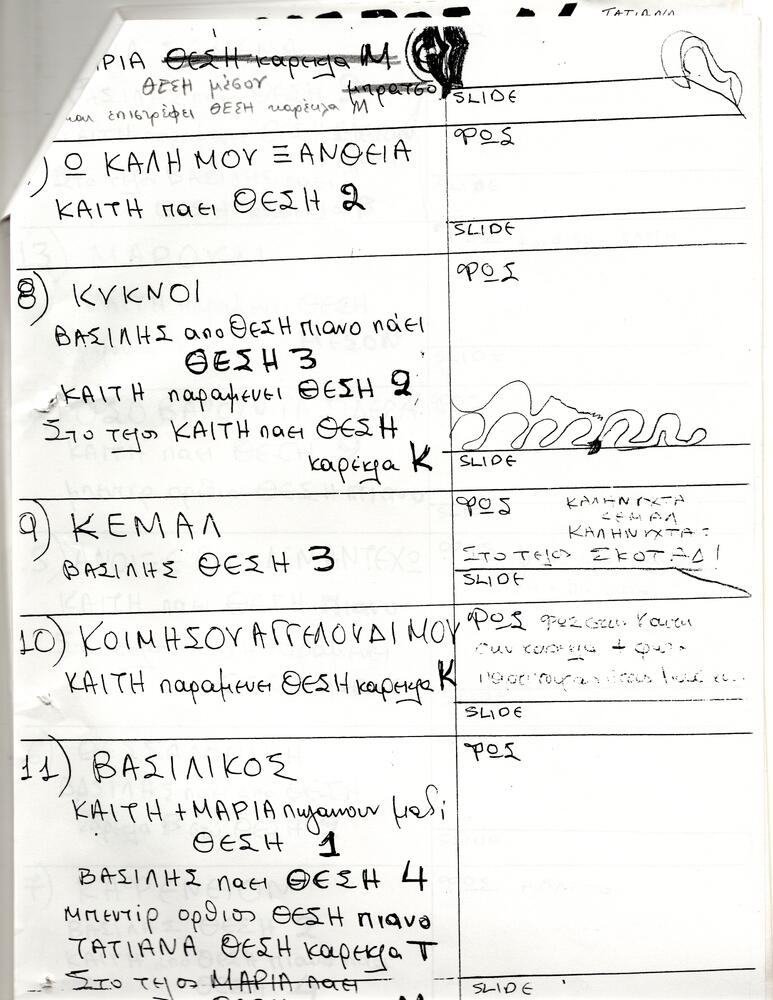 ΤΑΤΙΑΝΑ
ΡΙΑ ΘΕΣΗ καρεκλα Μ
ΘΕΣΗ μέσον μπρατσο
και επιστρέφει ΘΕΣΗ καρέκλα Μ
SLIDE
) Ω ΚΑΛΗ ΜΟΥ ΞΑΝΘΕΙΑ
ΦΩΣ
ΚΑΙΤΗ παει ΘΕΣΗ 2
SLIDE
8) ΚΥΚΝΟΙ
ΦΩΣ
ΒΑΣΙΛΗΣ απο ΘΕΣΗ πιανο πάει
ΘΕΣΗ 3
ΚΑΙΤΗ παραμενει ΘΕΣΗ 2
Στο τελος ΚΑΙΤΗ παει ΘΕΣΗ
καρεκλα Κ
SLIDE
9) ΚΕΜΑΛ
ΒΑΣΙΛΗΣ ΘΕΣΗ 3
ΦΩΣ ΚΑΛΗΝΥΧΤΑ
ΚΕΜΑΛ
ΚΑΛΗΝΥΧΤΑ
Στο τελος ΣΚΟΤΑΔΙ
SLIDE
10) ΚΟΙΜΗΣΟΥ ΑΓΓΕΛΟΥΔΙ ΜΟΥ
ΚΑΙΤΗ παραμενει ΘΕΣΗ καρεκλα Κ
ΦΩΣ
SLIDE
11) ΒΑΣΙΛΙΚΟΣ
ΦΩΣ
ΚΑΙΤΗ + ΜΑΡΙΑ πηγαινουν μαζι
ΘΕΣΗ 1
ΒΑΣΙΛΗΣ παει ΘΕΣΗ 4
μπεντιρ ορθιος ΘΕΣΗ πιανο
ΤΑΤΙΑΝΑ ΘΕΣΗ καρεκλα Τ
Στο τελος ΜΑΡΙΑ παει
SLIDE